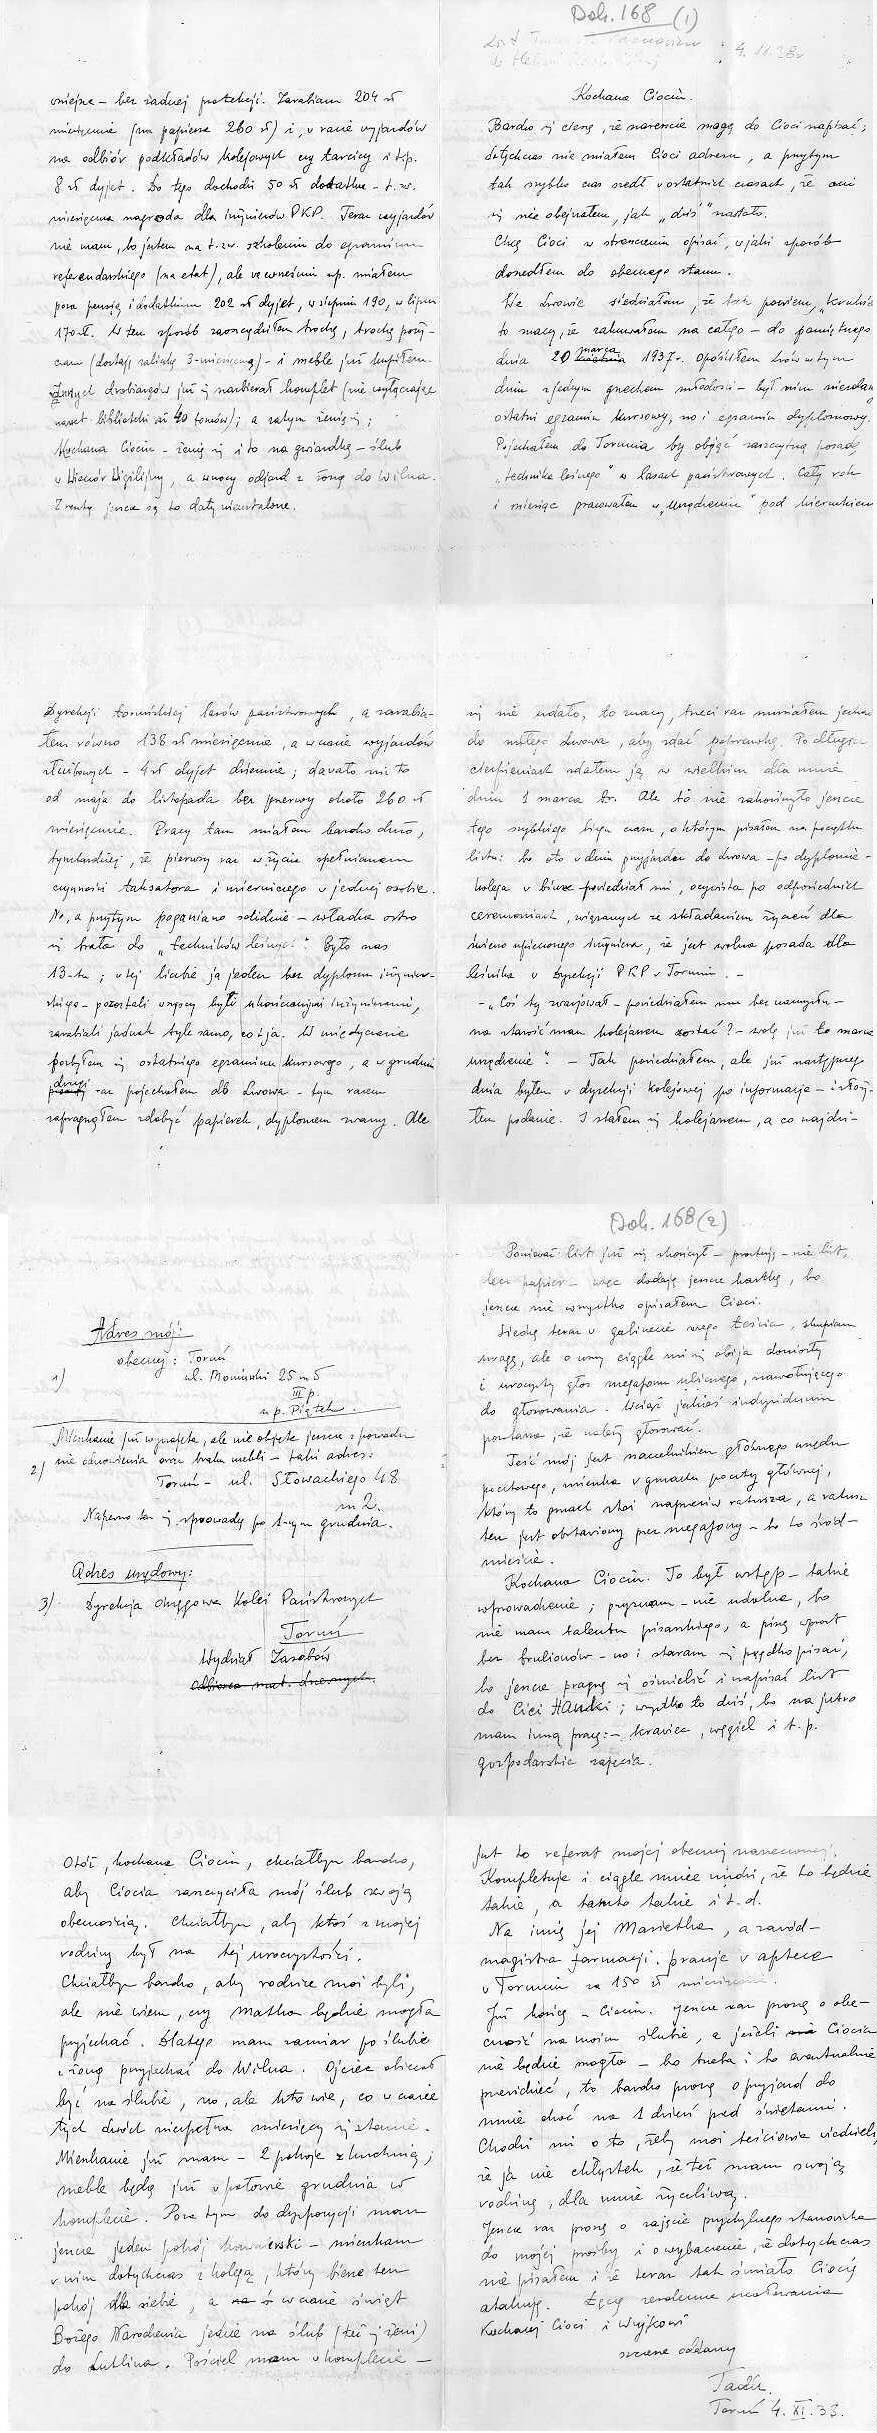 Dok. 168 (1)
4.11.38r
Kochana Ciociu.
Bardzo się cieszę, że nareszcie mogę do Cioci napisać;
dotychczas nie miałem Cioci adresu, a przytym
tak szybko czas szedł w ostatnich czasach, że ani
się nie obejrzałem, jak „dziś" nastało.
Chcę Cioci w streszczeniu opisać, w jaki sposób
doszedłem do obecnego stanu.
We Lwowie siedziałem, że tak powiem,
to znaczy, że zakuwałem na całego – do pamiętnego
dnia 20 marca 1937r. Opuściłem Lwów w tym
dniu z jednym grzechem młodości – był nim niezdany
ostatni egzamin kursowy, no i egzamin dyplomowy.
Pojechałem do Torunia by objąć zaszczytną posadę
„technika leśnego" w lasach państwowych. Cały rok
i miesiąc pracowałem w „Urządzeniu" pod kierunkiem
Dyrekcji toruńskiej lasów państwowych, a zarabia-
łem równo 138 zł miesięcznie, a w czasie wyjazdów
służbowych – 4 zł dyjet dziennie; dawało mi to
od maja do listopada bez przerwy około 260 zł
miesięcznie. Pracy tam miałem bardzo dużo,
tymbardziej, że pierwszy raz w życiu spełniałem
czynności taksatora i mierniczego w jednej osobie.
No, a przytym poganiano solidnie – władza ostro
się brała do „techników leśnych". Było nas
13-tu; w tej liczbie ja jeden bez dyplomu inżynier-
skiego – pozostali wszyscy byli ukończonymi inżynierami,
zarabiali jednak tyle samo, co i ja. W międzyczasie
pozbyłem się ostatniego egzaminu kursowego, a w grudniu
drugi raz pojechałem do Lwowa – tym razem
zapragnąłem zdobyć papierek, dyplomem zwany. Ale
się nie udało, to znaczy, trzeci raz musiałem jechać
do miłego Lwowa, aby zdać poprawkę. Po długich
cierpieniach zdałem ją w wielkim dla mnie
dniu 1 marca br. Ale to nie zakończyło jeszcze
tego szybkiego biegu czasu, o którym pisałem na początku
listu: bo oto w dniu przyjazdu do Lwowa – po dyplomie –
kolega w biurze powiedział mi, oczywista po odpowiednich
ceremoniach, związanych ze składaniem życzeń dla
świeżo upieczonego inżyniera, że jest wolna posada dla
leśnika w Dyrekcji PKP w Toruniu. –
– „Coś ty zwarjował – powiedziałem mu bez namysłu –
na starość mam kolejarzem zostać? – wolę już to marne
urządzenie". – Tak powiedziałem, ale już następnego
dnia byłem w dyrekcji kolejowej po informacje – i złoży-
łem podanie. I stałem się kolejarzem, a co najdzi-
wniejsze – bez żadnej protekcji. Zarabiam 204 zł
miesięcznie (na papierze 260 zł) i, w razie wyjazdów
na odbiór podkładów kolejowych czy tarcicy i t.p.
8 zł dyjet. Do tego dochodzi 50 zł dodatku – t. zw.
miesięczna nagroda dla inżynierów PKP. Teraz wyjazdów
nie mam, bo jestem na t. zw. szkoleniu do egzaminu
referendarskiego (na etat), ale we wrześniu np. miałem
poza pensją i dodatkiem 202 zł dyjet, w sierpniu 190, w lipcu
170 zł. W ten sposób zaoszczędziłem trochę, trochę poży-
czam (dostaję zaliczkę 3-miesięczną) – i meble już kupiłem.
Innych drobiazgów już się nazbierał komplet (nie wyłączając
nawet biblioteki aż 40 tomów); a zatym żenię się;
Kochana Ciociu – żenię się i to na gwiazdkę – ślub
w Wieczór Wigilijny, a w nocy odjazd z żoną do Wilna.
Zresztą jeszcze są to daty nieustalone.
Adres mój:
1) obecny: Toruń
ul. Moniuszki 25 m 5
III p.
u p. Piątek.
2) Mieszkanie już wynajęte, ale nie objęte jeszcze z powodu
nie odnowienia oraz braku mebli – taki adres:
Toruń – ul. Słowackiego 48
m 2.
Napewno tam się sprowadzę po 1-szym grudnia.
Adres urzędowy:
3) Dyrekcja Okręgowa Kolei Państwowych
Toruń
Wydział Zasobów
Odbiorca mat. drzewnych.
Dok. 168 (2)
Ponieważ list już się skończył – prostuję – nie list,
lecz papier – więc dodaję jeszcze kartkę, bo
jeszcze nie wszystko opisałem Cioci.
Siedzę teraz w gabinecie mego teścia, skupiam
uwagę, ale o uszy ciągle mi się obija donośny
i uroczysty głos megafonu ulicznego, nawołującego
do głosowania. Wciąż jakieś indywiduum
powtarza, że należy głosować.
Teść mój jest naczelnikiem głównego urzędu
pocztowego, mieszka w gmachu poczty głównej,
który to gmach stoi naprzeciw ratusza, a ratusz
ten jest obstawiony przez megafony – bo to śród-
mieście.
Kochana Ciociu. To był wstęp – takie
wprowadzenie; przyznam – nie udolne, bo
nie mam talentu pisarskiego, a piszę wprost
bez brulionów – no i staram się prędko pisać,
bo jeszcze pragnę się ośmielić i napisać list
do Cioci Handki; wszystko to dziś, bo na jutro
mam inną pracę: – krawiec, węgiel i t. p.
gospodarskie zajęcia.
Otóż, kochana Ciociu, chciałbym bardzo,
aby Ciocia zaszczyciła mój ślub swoją
obecnością. Chciałbym, aby ktoś z mojej
rodziny był na tej uroczystości.
Chciałbym bardzo, aby rodzice moi byli,
ale nie wiem, czy Matka będzie mogła
przyjechać. Dlatego mam zamiar po ślubie
z żoną przyjechać do Wilna. Ojciec obiecał
być na ślubie, no, ale kto wie, co w czasie
tych dwóch niespełna miesięcy się stanie.
Mieszkanie już mam – 2 pokoje z kuchnią;
meble będą już w połowie grudnia w
komplecie. Poza tym do dyspozycji mam
jeszcze jeden pokój kawalerski – mieszkam
w nim dotychczas z kolegą, który bierze ten
pokój dla siebie, a w czasie świąt
Bożego Narodzenia jedzie na ślub (też się żeni)
do Lublina. Pościel mam w komplecie –
jest to referat mojej obecnej narzeczonej.
Kompletuje i ciągle mnie nudzi, że to będzie
takie, a tamto takie i t. d.
Na imię jej Marietka, a zawód –
magistra farmacji. pracuje w aptece
w Toruniu za 150 zł miesięcznie.
Już kończę – Ciociu. Jeszcze raz proszę o obe-
cność na moim ślubie, a jeżeli Ciocia
nie będzie mogła – bo trzeba i to ewentualnie
przewidzieć, to bardzo proszę o przyjazd do
mnie choć na 1 dzień przed świętami.
Chodzi mi o to, żeby moi teściowie wiedzieli,
że ja nie chłystek, że też mam swoją
rodzinę, dla mnie życzliwą.
Jeszcze raz proszę o zajęcie przychylnego stanowiska
do mojej prośby i o wybaczenie, że dotychczas
nie pisałem i że teraz tak śmiało Ciocię
atakuję. Łączę serdeczne ucałowania
Kochanej Cioci i Wujkowi
szczerze oddany
Tadzik.
Toruń 4.XI.38.